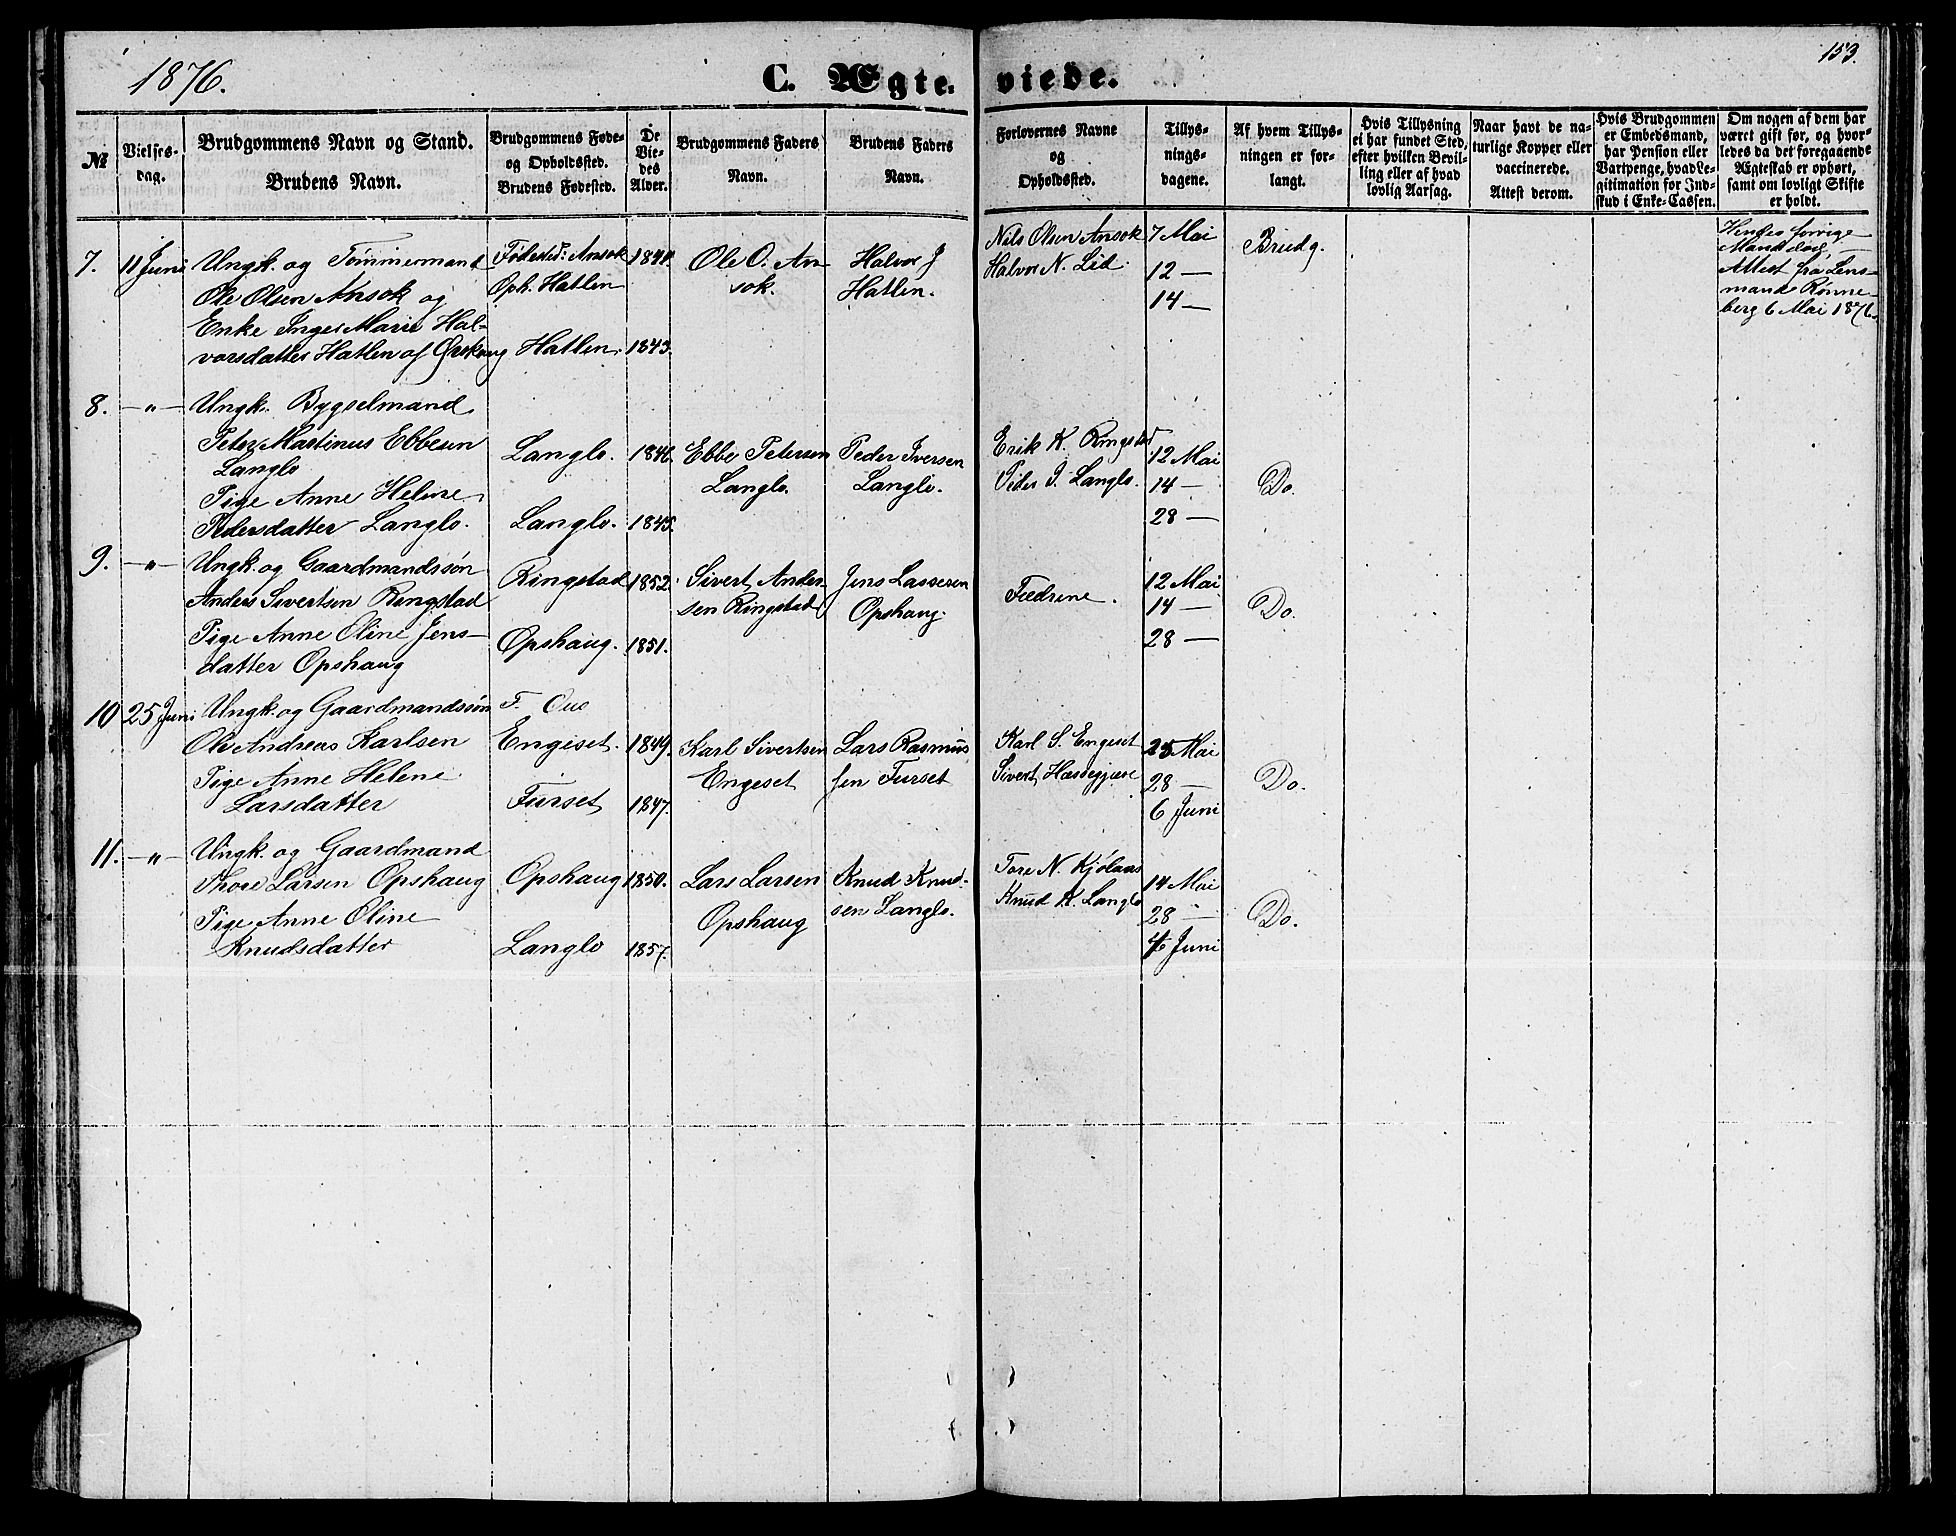 1876.
C. Ægte- viede.
153.
No
Vielses-
dag.
Brudgommens Navn og Stand.
Brudens Navn.
Brudgommens Føde-
og Opholdssted.
Brudens Fødested.
De
Vie-
des
Alder.
Brudgommens Faders
Navn.
Brudens Faders
Navn.
Forlovernes Navne
og
Opholdssted.
Tillys-
nings-
dagene.
Af hvem Tillys-
ningen er for-
langt.
Hvis Tillysning
ei har fundet Sted,
efter hvilken Bevil-
ling eller af hvad
lovlig Aarsag.
Naar havt de na-
turlige Kopper eller
vaccinerede.
Attest derom.
Hvis Brudgommen
er Embedsmand,
har Pension eller
Vartpenge, hvad Le-
gitimation for Ind-
skud i Enke-Cassen.
Om nogen af dem har
været gift før, og hvor-
ledes da det foregaaende
Ægteskab er ophørt,
samt om lovligt Skifte
er holdt.
7.
11 Juni
Ungk. og Tømmermand
Ole Olsen Ansok og
Enke Inger Marie Hal-
vorsdatter Hatlen af Ørskoug
Fødested: Ansok
Oph. Hatlen
Hatlen.
1841.
1843.
Ole O. An
sok.
Halvor J
Hatlen.
Nils Olsen Ansok
Halvor N. Lid.
7 Mai
12 —
14 —
Brudg.
Hendes forrige
Mand død,
Attest fra Lens-
mand Rønne-
berg 6 Mai 1876.
8.
—"—
Ungk. Bygselmand
Peter Martinus Ebbesen
Langlo
Pige Anne Helene
Pedersdatter Langlo.
Langlo.
Langlo.
1846.
1845.
Ebbe Petersen
Langlo.
Peder Iversen
Langlo.
Erik K. Ringstad
Peder I. Langlo.
12 Mai
14 —
28 —
Do.
9.
—"—
Ungk. og Gaardmandssøn
Anders Sivertsen Ringstad
Pige Anne Oline Jens-
datter Opshaug
Ringstad
Opshaug.
1852.
1851.
Sivert Ander-
sen Ringstad
Jens Lassesen
Opshaug.
Fædrene.
12 Mai
14 —
28 —
Do.
10
25 Juni
Ungk. og Gaardmandssøn
Ole Andreas Karlsen
Pige Anne Helene
Larsdatter
F. Oue
Engeset.
Furset
1849.
1847.
Karl Sivertsen
Engeset
Lars Rasmus
sen Furset
Karl S. Engeset
Sivert
25 Mai
28 —
6 Juni
Do.
11.
—"—
Ungk. og Gaardmand
Thore Larsen Opshaug
Pige Anne Oline
Knudsdatter
Opshaug
Langlo
1850.
1857.
Lars Larsen
Opshaug
Knud Knud-
sen Langlo.
Tore N. Kjølaas
Knud K. Langlo
14 Mai
28 —
4 Juni
Do.